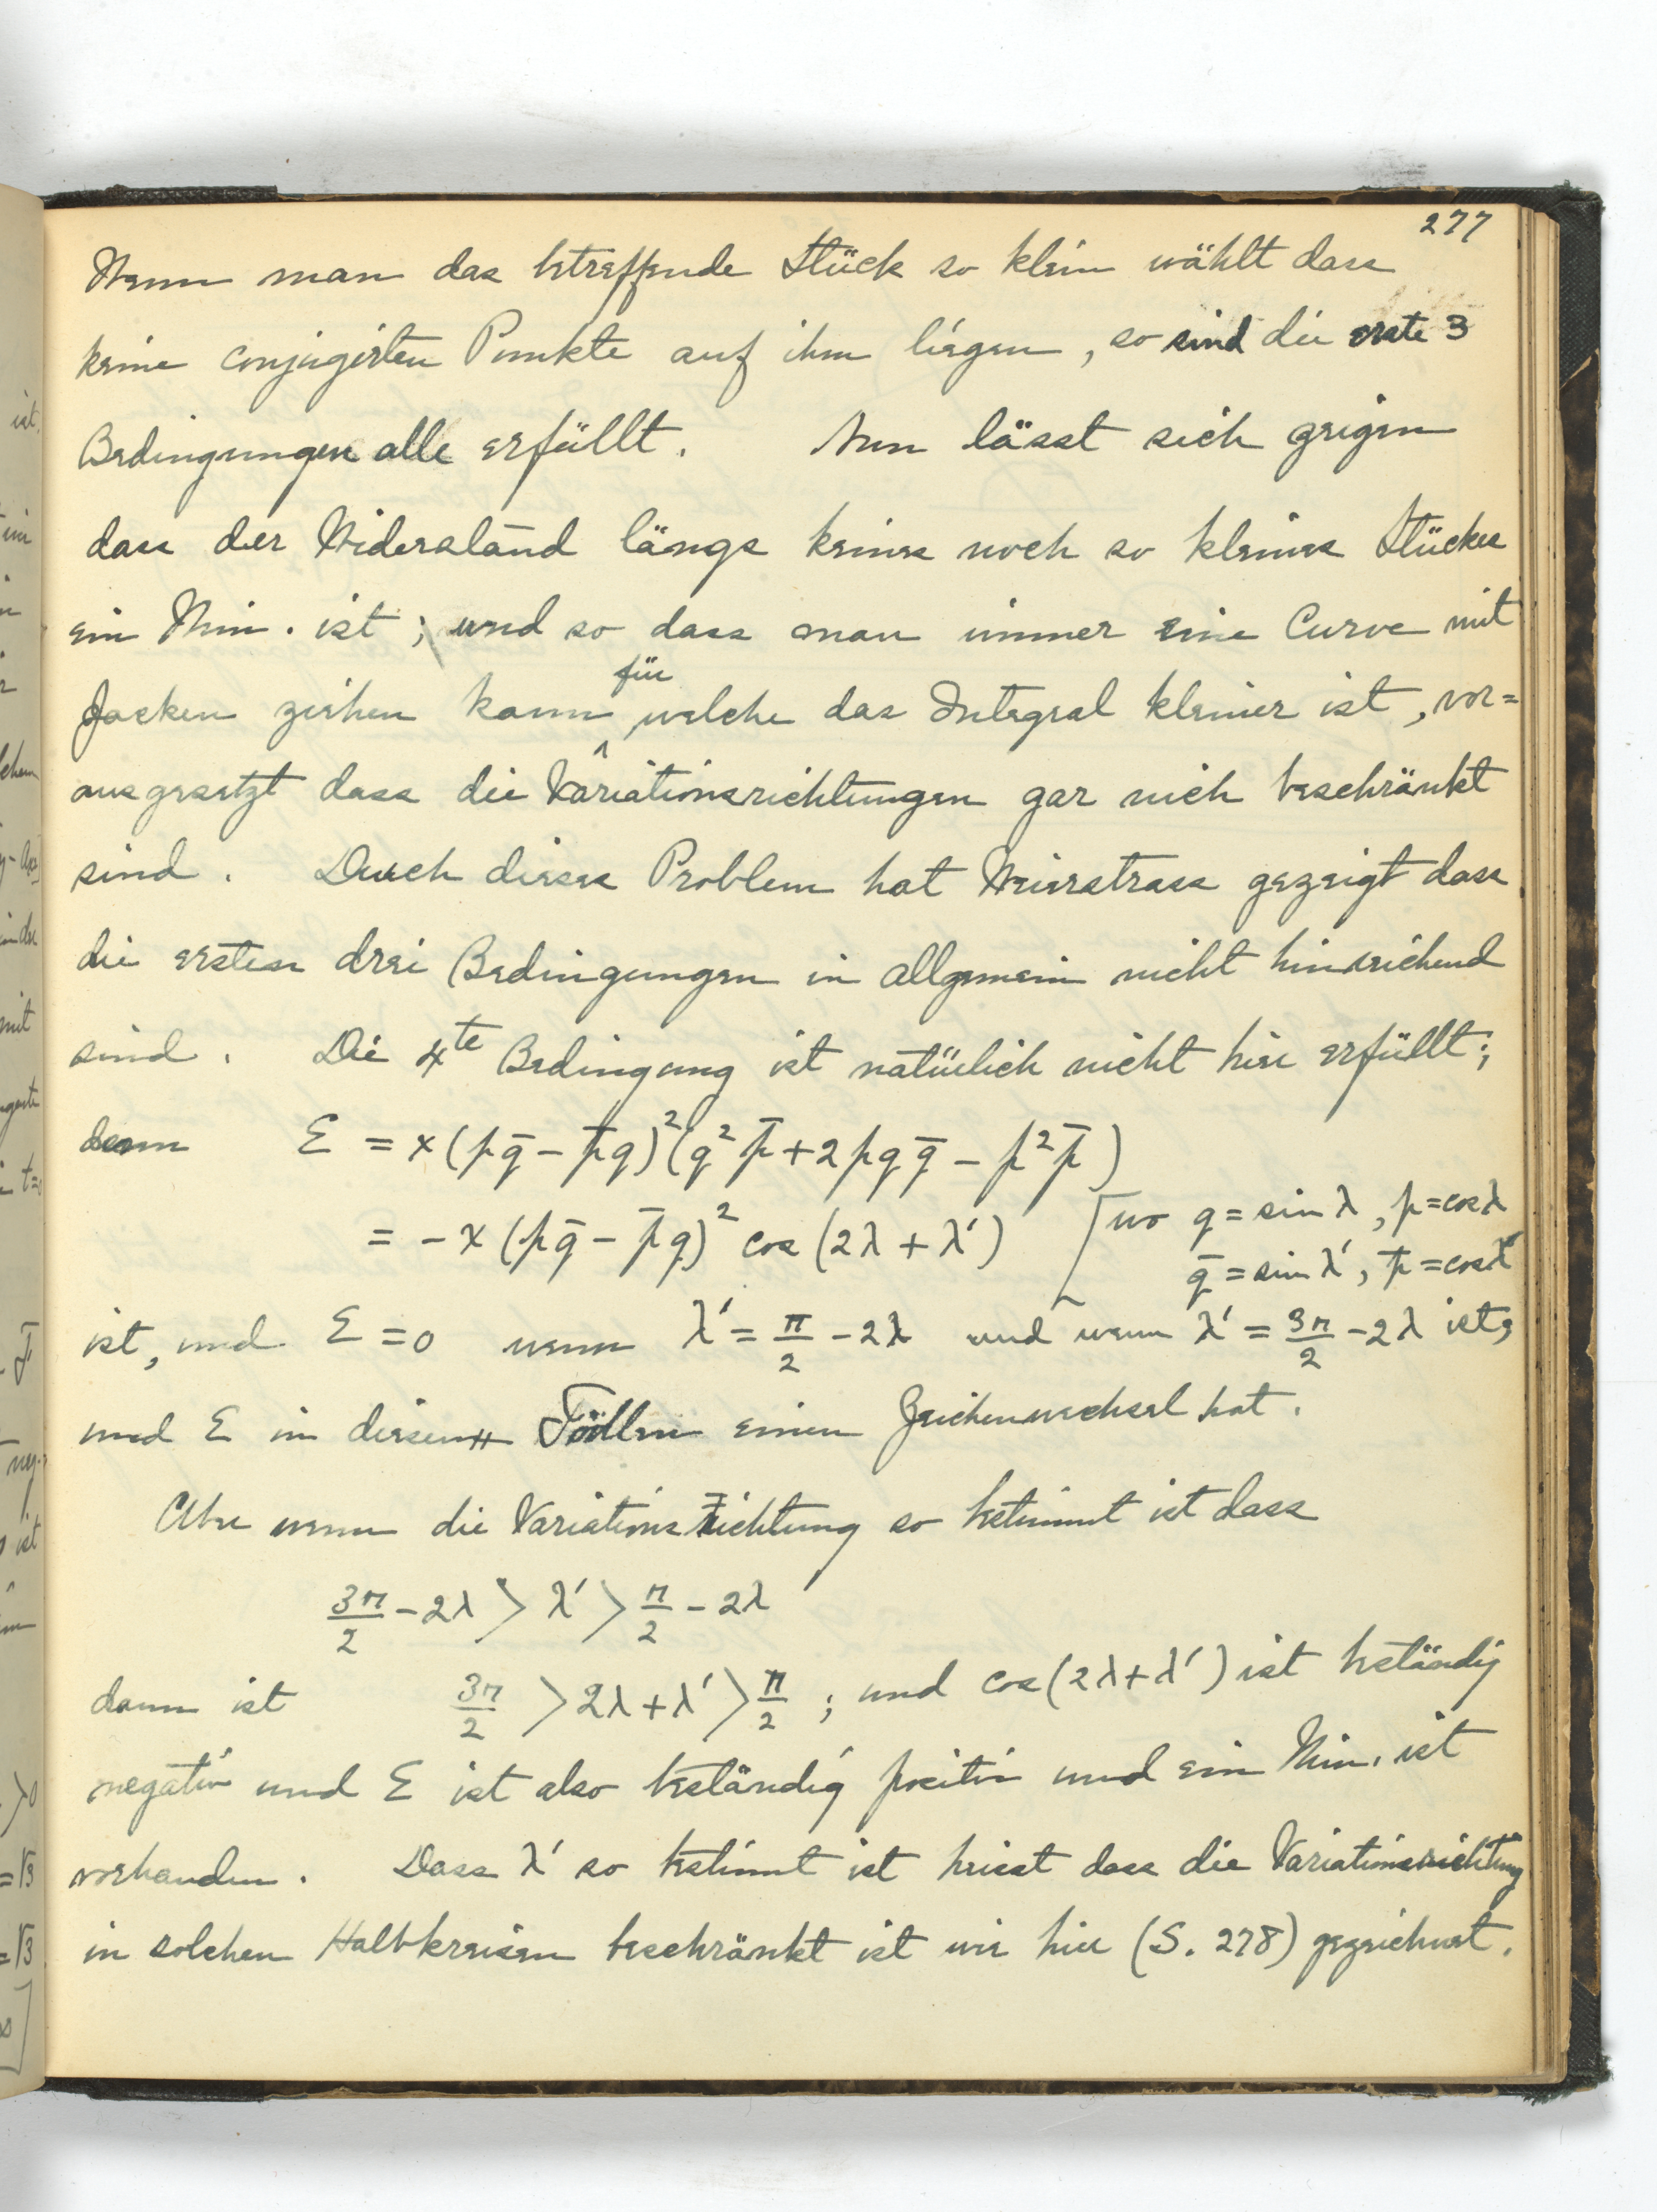 277
Wenn man das betreffende Stück so klein wählt dass
keine conjugirten Punkte auf ihm liegen, so sind die erste 3
Bedingungen alle erfüllt. Nun lässt sich zeigen
dass der Widerstand längs keines noch so kleines Stückes
ein Min. ist; und so dass man immer eine Curve mit
Zacken ziehen kann für welche das Integral kleiner ist, vor=
ausgesetzt dass die Variationsrichtungen gar nich beschränkt
sind. Durch dieses Problem hat Weierstrass gezeigt dass
die ersten drei Bedingungen in allgemein nicht hinreichend
sind. Die 4te Bedingung ist natürlich nicht hier erfüllt;
denn Ɛ = x(pq̄ − p̄q)²(q²p̄ + 2pqq̄ − p²p̄)
= −x(pq̄ − p̄q)² cos(2λ + λ′) [wo q = sin λ, p = cos λ
q̄ = sin λ′, p̄ = cos λ′
ist, und Ɛ = 0 wenn λ′ = π/2 − 2λ und wenn λ′ = 3π/2 − 2λ ist,
und Ɛ in diesen Fällen einen Zeichenwechsel hat.
Aber wenn die Variationsrichtung so bestimmt ist dass
3π/2 − 2λ > λ′ > π/2 − 2λ
dann ist 3π/2 > 2λ + λ′ > π/2; und cos(2λ + λ′) ist beständig
negativ und Ɛ ist also beständig positiv und ein Min. ist
vorhanden. Dass λ′ so bestimmt ist heisst dass die Variationsrichtung
in solchen Halbkreisen beschränkt ist wie hier (S. 278) gezeichnet.